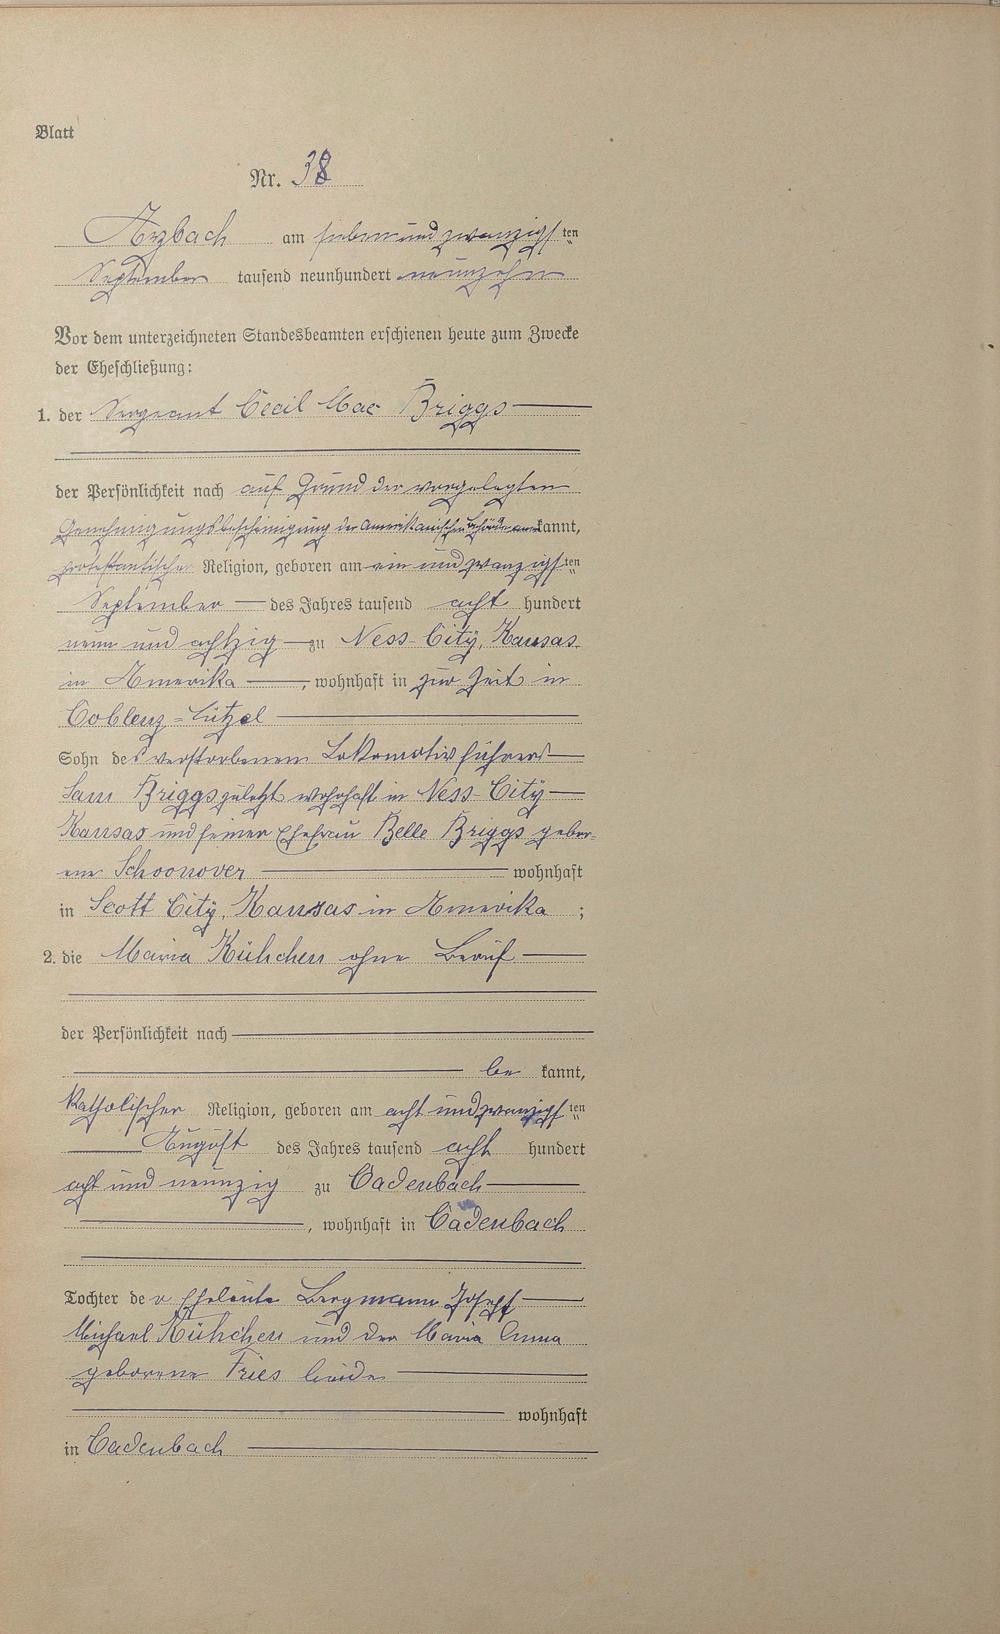 Blatt
Nr. 38
Arzbach am siebenundzwanzigsten
September tausend neunhundert neunzehn
Vor dem unterzeichneten Standesbeamten erschienen heute zum Zwecke
der Eheschließung:
1. der Sergeant Cecil Mac Briggs
der Persönlichkeit nach auf Grund der vorgelegten
Genehmigungsbescheinigung der Amerikanischen Behörde anerkannt,
protestantischer Religion, geboren am ein und zwanzigsten
September des Jahres tausend acht hundert
neun und achtzig zu Ness-City, Kansas
in Amerika, wohnhaft in zur Zeit in
Coblenz-Lützel
Sohn des verstorbenen Lokomotivführers
Sam Briggs zuletzt wohnhaft in Ness-City
Kansas und seiner Ehefrau Belle Briggs gebor-
ene Schoonover wohnhaft
in Scott City, Kansas in Amerika ;
2. die Maria Kühchen ohne Beruf
der Persönlichkeit nach
be kannt,
katholischer Religion, geboren am acht und zwanzigsten
August des Jahres tausend acht hundert
acht und neunzig zu Cadenbach
, wohnhaft in Cadenbach
Tochter der Eheleute Bergmann Joseph
Michael Kühchen und der Maria Anna
geborene Fries beide
wohnhaft
in Cadenbach